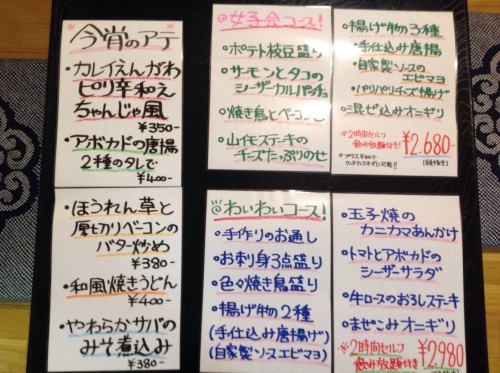 今宵のアテ
・カレイえんがわ
ピリ辛和え
ちゃんじゃ風
¥350-
・アボカドの唐揚
2種のタレで
¥400-
・ほうれん草と
厚切りベーコンの
バター炒め
¥380-
・和風焼きうどん
¥400-
・やわらかサバの
みそ煮込み
¥380-
◎女子会コース!
・ポテト枝豆盛り
・サーモンとタコの
シーザーカルパッチョ
・焼き鳥とベーコン
・山イモステーキの
チーズたっぷりのせ
・揚げ物3種
・手仕込み唐揚
・自家製ソースの
エビマヨ
・パリパリチーズ揚げ
・混ぜ込みオニギリ
※2時間セルフ
飲み放題付き!
¥2.680-
(税抜き)
◎わいわいコース!
・手作りのお通し
・お刺身3点盛り
・色々焼き鳥盛り
・揚げ物2種
(手仕込み唐揚げ)
(自家製ソースエビマヨ)
・玉子焼の
カニカマあんかけ
・トマトとアボカドの
シーザーサラダ
・牛ロースのおろしステーキ
・まぜこみオニギリ
※2時間セルフ
飲み放題付き
¥2980